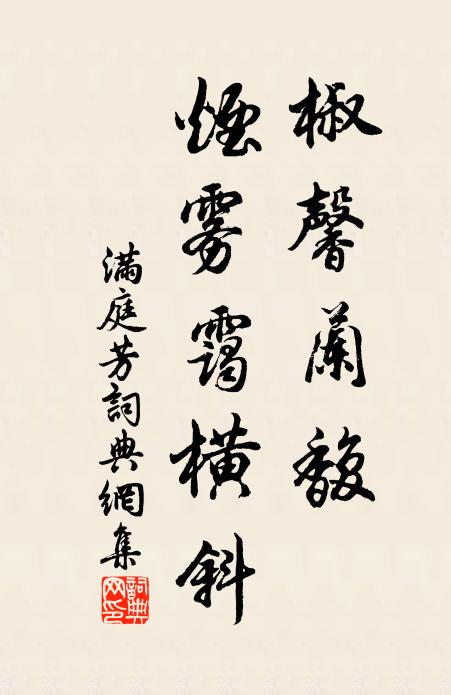 椒馨蘭馥
煙雾靄橫斜
滿庭芳詞典網集
詞典网印